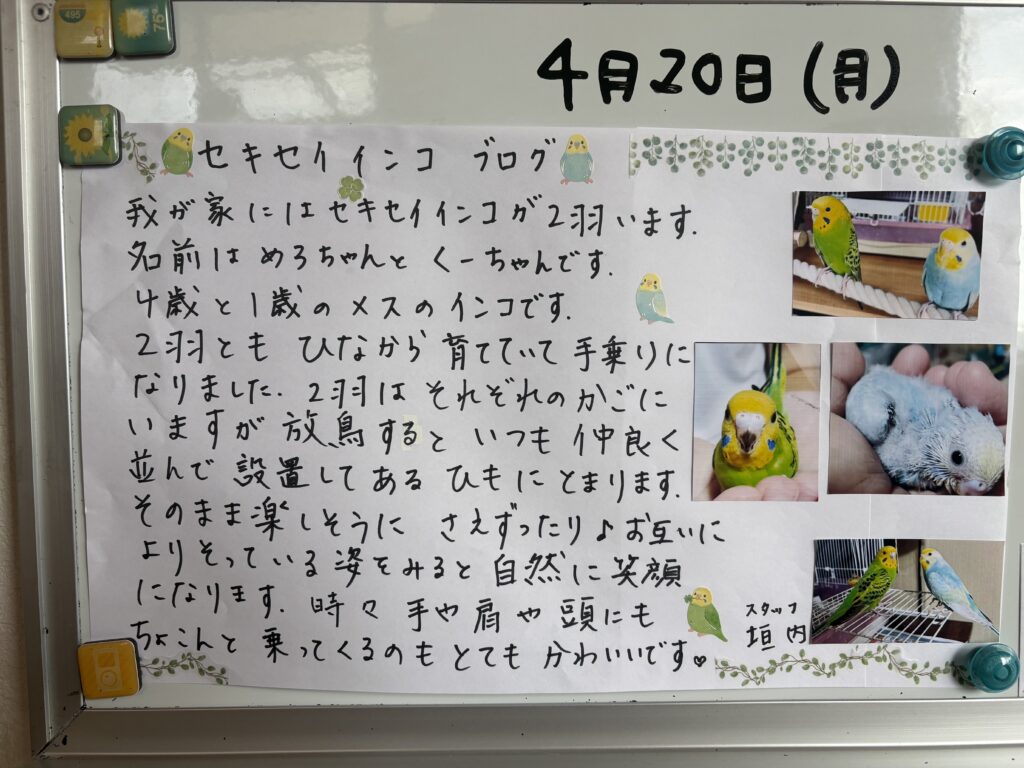 495
75
4月20日(月)
セキセイインコ ブログ
我が家にはセキセイインコが2羽います.
名前は めろちゃんと くーちゃんです.
4歳と1歳の メスの インコです.
2羽とも ひなから 育てていて 手乗りに
なりました. 2羽は それぞれの かごに
いますが 放鳥すると いつも 仲良く
並んで 設置してある ひもに とまります.
そのまま楽しそうに さえずったり♪お互いに
よりそっている 姿をみると 自然に 笑顔
になります. 時々 手や 肩や 頭にも
ちょこんと 乗ってくるのも とても かわいいです♥
スタッフ
垣内